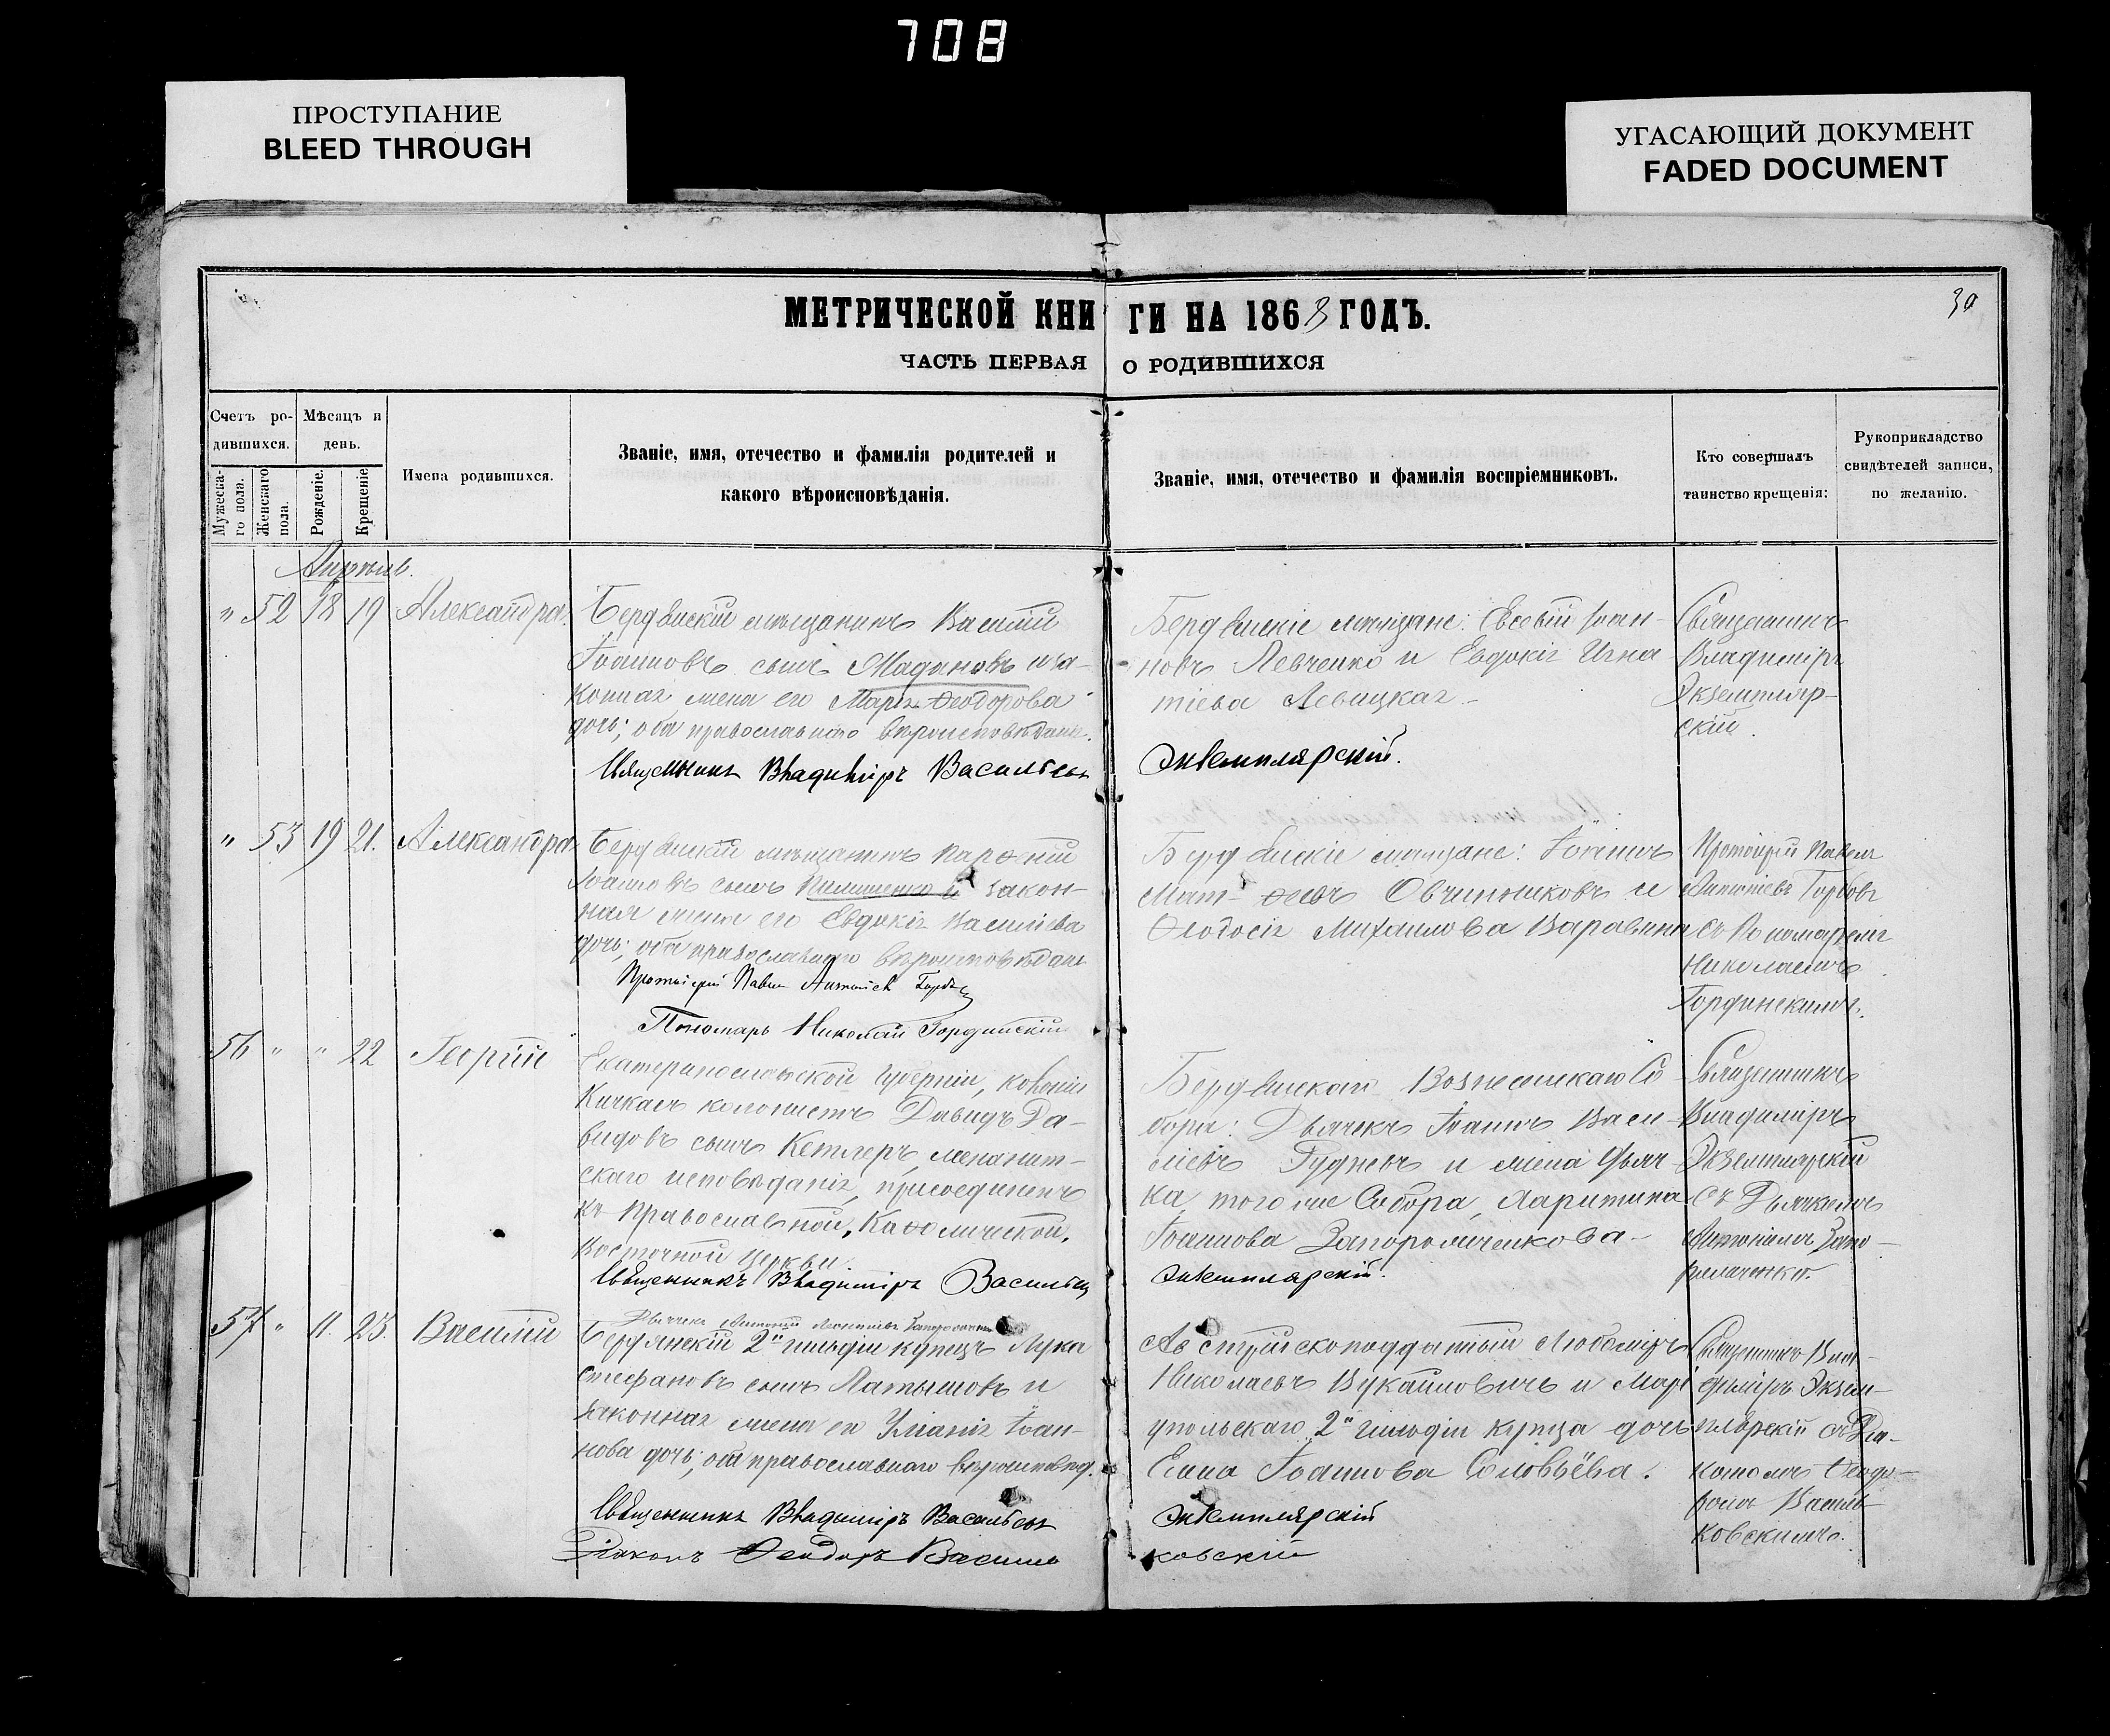 708
ПРОСТУПАНИЕ
BLEED THROUGH
УГАСАЮЩИЙ ДОКУМЕНТ
FADED DOCUMENT
МЕТРИЧЕСКОЙ КНИ ГИ НА 1863 ГОДЪ.
30
ЧАСТЬ ПЕРВАЯ О РОДИВШИХСЯ
Счетъ ро-
дившихся.
Мужеска-
го пола.
Женскаго
пола.
Мѣсяцъ и
день.
Рожденіе.
Крещеніе
Имена родившихся.
Званіе, имя, отечество и фамилія родителей и
какого вѣроисповѣданія.
Званіе, имя, отечество и фамилія воспріемниковъ.
Кто совершалъ
таинство крещенія:
Рукоприкладство
свидѣтелей записи,
по желанію.
Апрѣль.
" 52 18 19 Александра.
Бердянскій мѣщанинъ Василій
Іоанновъ сынъ Мадановъ и за-
конная жена его Марія Ѳеодорова
дочь; оба православнаго вѣроисповѣданія.
Священникъ Владиміръ Васильевъ
Бердянскіе мѣщане: Евсевій Іоан-
новъ Левченко и Евдокія Игна
тіева Левицкая
Экземплярскій.
Священникъ
Владиміръ
Экземпляр-
скій.
" 53 19 21. Александра
Бердянскій мѣщанинъ Парѳеній
Іоанновъ сынъ и закон-
ная жена его Евдокія Василіева
дочь; оба православнаго вѣроисповѣданія
Протоіерей Павелъ
Пономарь Николай Гординскій
Бердянскіе мѣщане: Іоаннъ
Мат-ѳеевъ Овчинниковъ и
Ѳеодосія Михаилова
Протоіерей Павелъ
съ Пономаремъ
Николаемъ
Гординскимъ.
56 " " 22 Георгій
Екатеринославской губерніи, колоніи
Кичкасъ колонистъ Давидъ Да-
видовъ сынъ Кетлеръ, менонит-
скаго исповѣданія, присоединенъ
къ Православной, Каѳолической,
Восточной Церкви.
Священникъ Владиміръ Васильевъ
Бердянскаго Вознесенскаго Со
бора: Дьячекъ Іоаннъ Васи-
ліевъ и жена Дьяч
ка, того же Собора,
Іоаннова Запорожченкова
Экземплярскій.
Священникъ
Владиміръ
Экземплярскій
съ Дьячкомъ
57 " 11. 23. Василій
Бердянскій 2й гильдіи купецъ Лука
Стефановъ сынъ Латышовъ и
законная жена его Іоан-
нова дочь; оба православнаго вѣроисповѣд.
Священникъ Владиміръ Васильевъ
Діаконъ Ѳеодоръ Василь
Австрійскоподданный Любоміръ
Николаевъ Вукаиловичъ и Марі
упольскаго 2й гильдіи купца дочь
Елена Іоаннова Соловьёва.
Экземплярскій
ковскій
Священникъ Вла-
диміръ Экзем-
плярскій съ Діа-
кономъ Ѳеодо-
ромъ Василь-
ковскимъ.